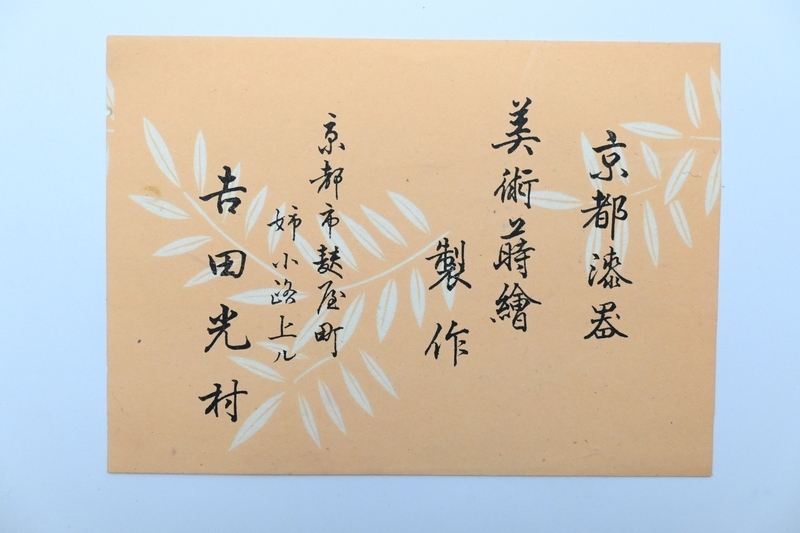 京都漆器
美術蒔繪
製作
京都市麩屋町
姉小路上ル
吉田光村